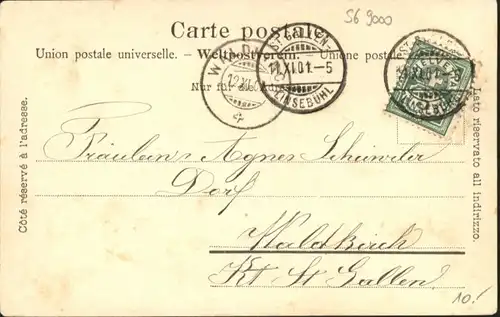 SG 9000
Carte postale.
Union postale universelle. — Weltpostverein. — Unione postale
Nur für die Adresse
ST. GALLEN-
11.XI.01.–5
LINSEBÜHL
12.XI.
4
11.XI.01.–5
LINSEBÜHL
Côté réservé à l'adresse.
Lato riservato all indirizzo.
Fräulein Agnes
Dorf
Waldkirch
Kt. St. Gallen.
10.-